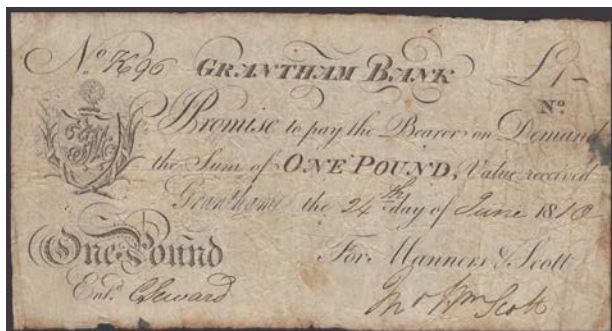 No K96 GRANTHAM BANK £1-
No.
I Promise to pay the Bearer on Demand
the Sum of ONE POUND, Value received
Grantham the 24th day of June 1810
One Pound For Manners & Scott
Entd. C Seward